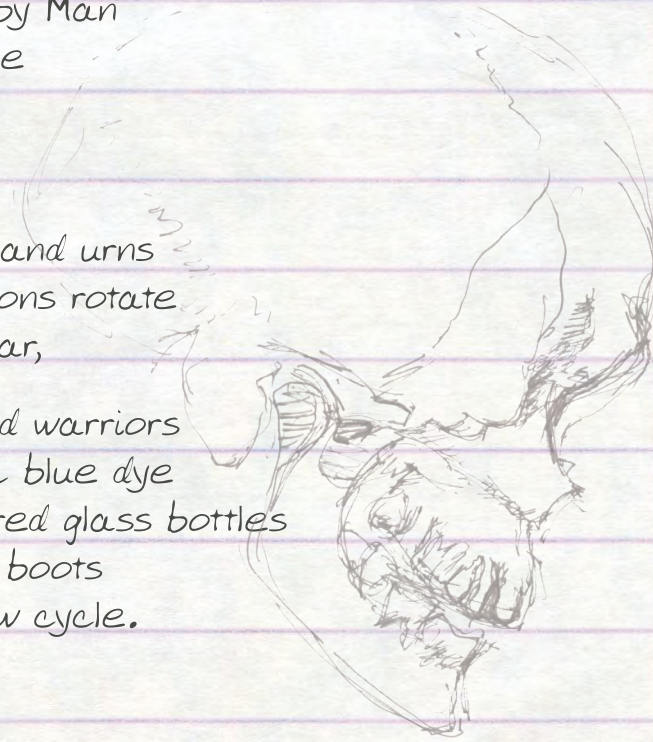 by Man
e
and urns
ons rotate
ar,
d warriors
blue dye
red glass bottles
boots
w cycle.